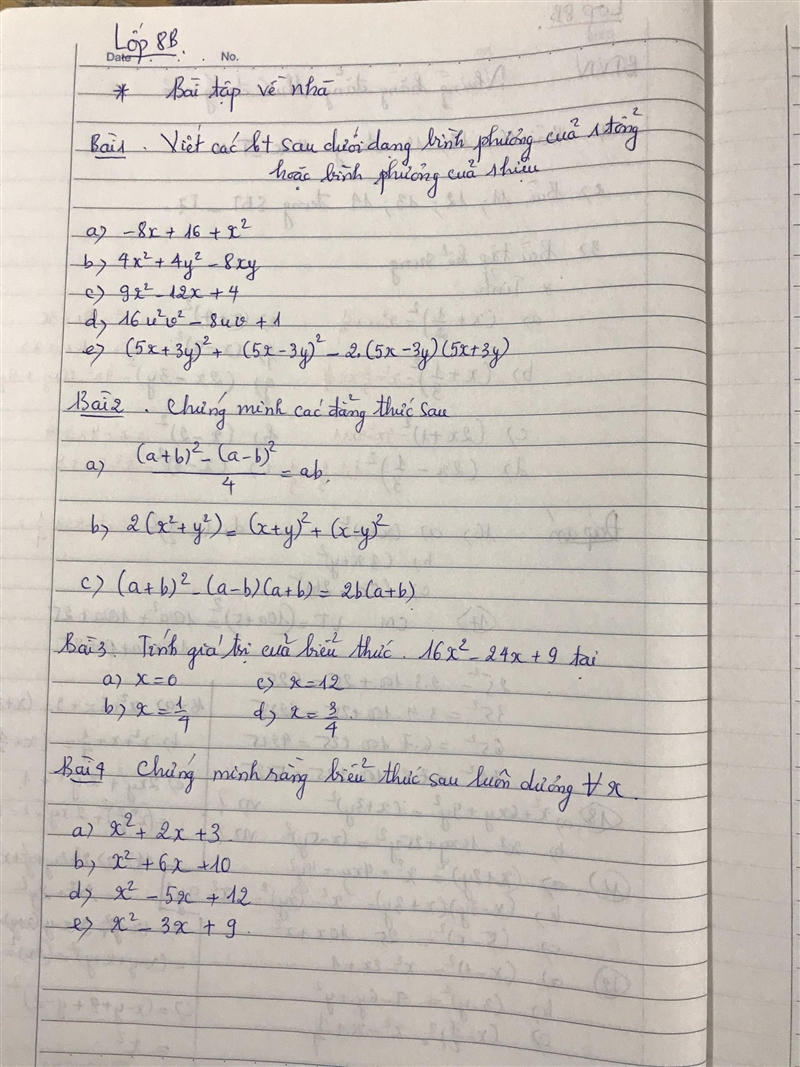 Lớp 8B
Date No.
* Bài tập về nhà
Bài 1. Viết các bt sau dưới dạng bình phương của 1 tổng
hoặc bình phương của 1 hiệu
a) -8x + 16 + x²
b) 4x² + 4y² - 8xy
c) 9x² - 12x + 4
d) 16u²v² - 8uv + 1
e) (5x+3y)² + (5x-3y)² - 2.(5x-3y)(5x+3y)
Bài 2. Chứng minh các đẳng thức sau
a) ((a+b)² - (a-b)²)/4 = ab.
b) 2(x²+y²) = (x+y)² + (x-y)²
c) (a+b)² - (a-b)(a+b) = 2b(a+b)
Bài 3. Tính giá trị của biểu thức. 16x² - 24x + 9 tại
a) x=0 c) x=12
b) x = 1/4 d) x = 3/4
Bài 4 Chứng minh rằng biểu thức sau luôn dương ∀x.
a) x² + 2x + 3
b) x² + 6x + 10
d) x² - 5x + 12
e) x² - 3x + 9.